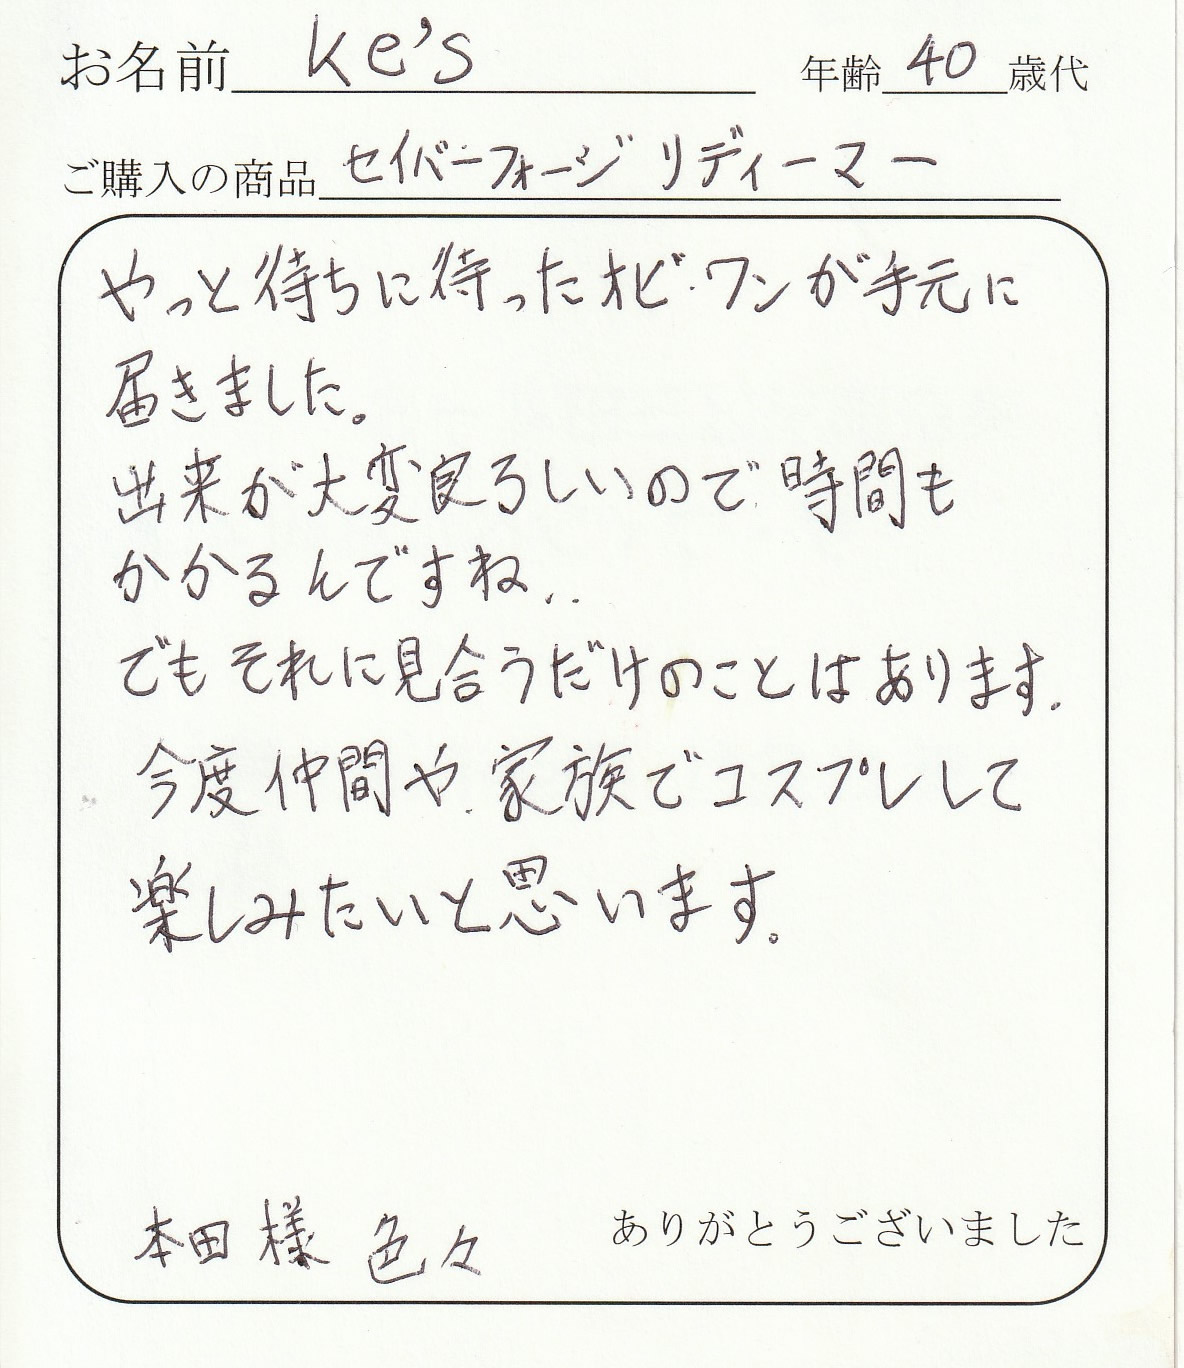 お名前 ke's 年齢 40 歳代
ご購入の商品 セイバーフォージ リディーマー
やっと待ちに待ったオビ・ワンが手元に
届きました。
出来が大変良ろしいので時間も
かかるんですね..
でもそれに見合うだけのことはあります.
今度仲間や、家族でコスプレして
楽しみたいと思います。
本田様 色々 ありがとうございました